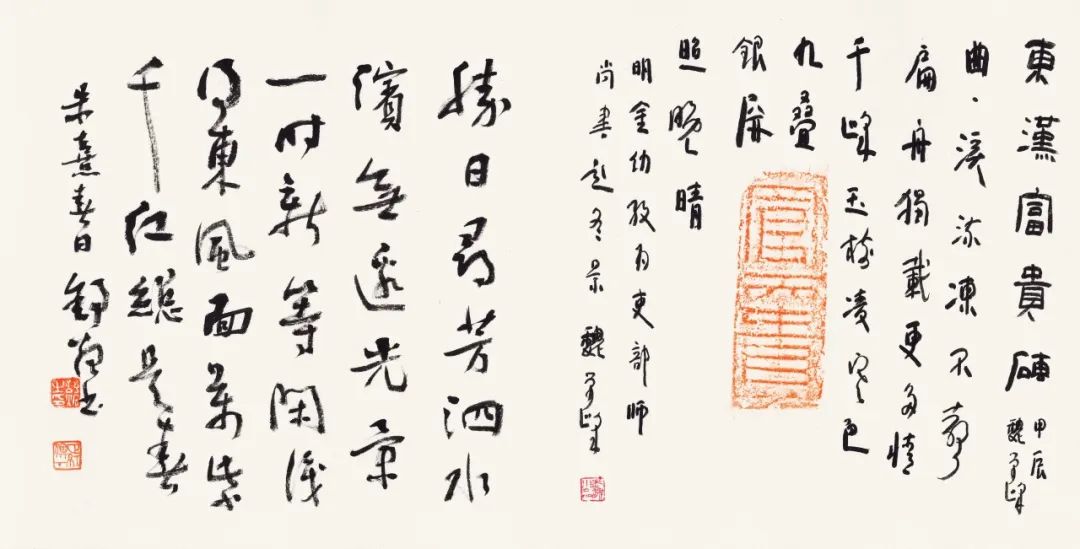 東漢富貴磚
甲辰
魏
曲、溪流凍不聲
扁舟獨載更多情
千峰玉樹凌寒色
九疊
銀屏
照晚晴
明金幼孜有吏部師
尚書冬景 魏
勝日尋芳泗水
濱無邊光景
一時新等閑識
得東風面萬紫
千紅總是春
朱熹春日 書